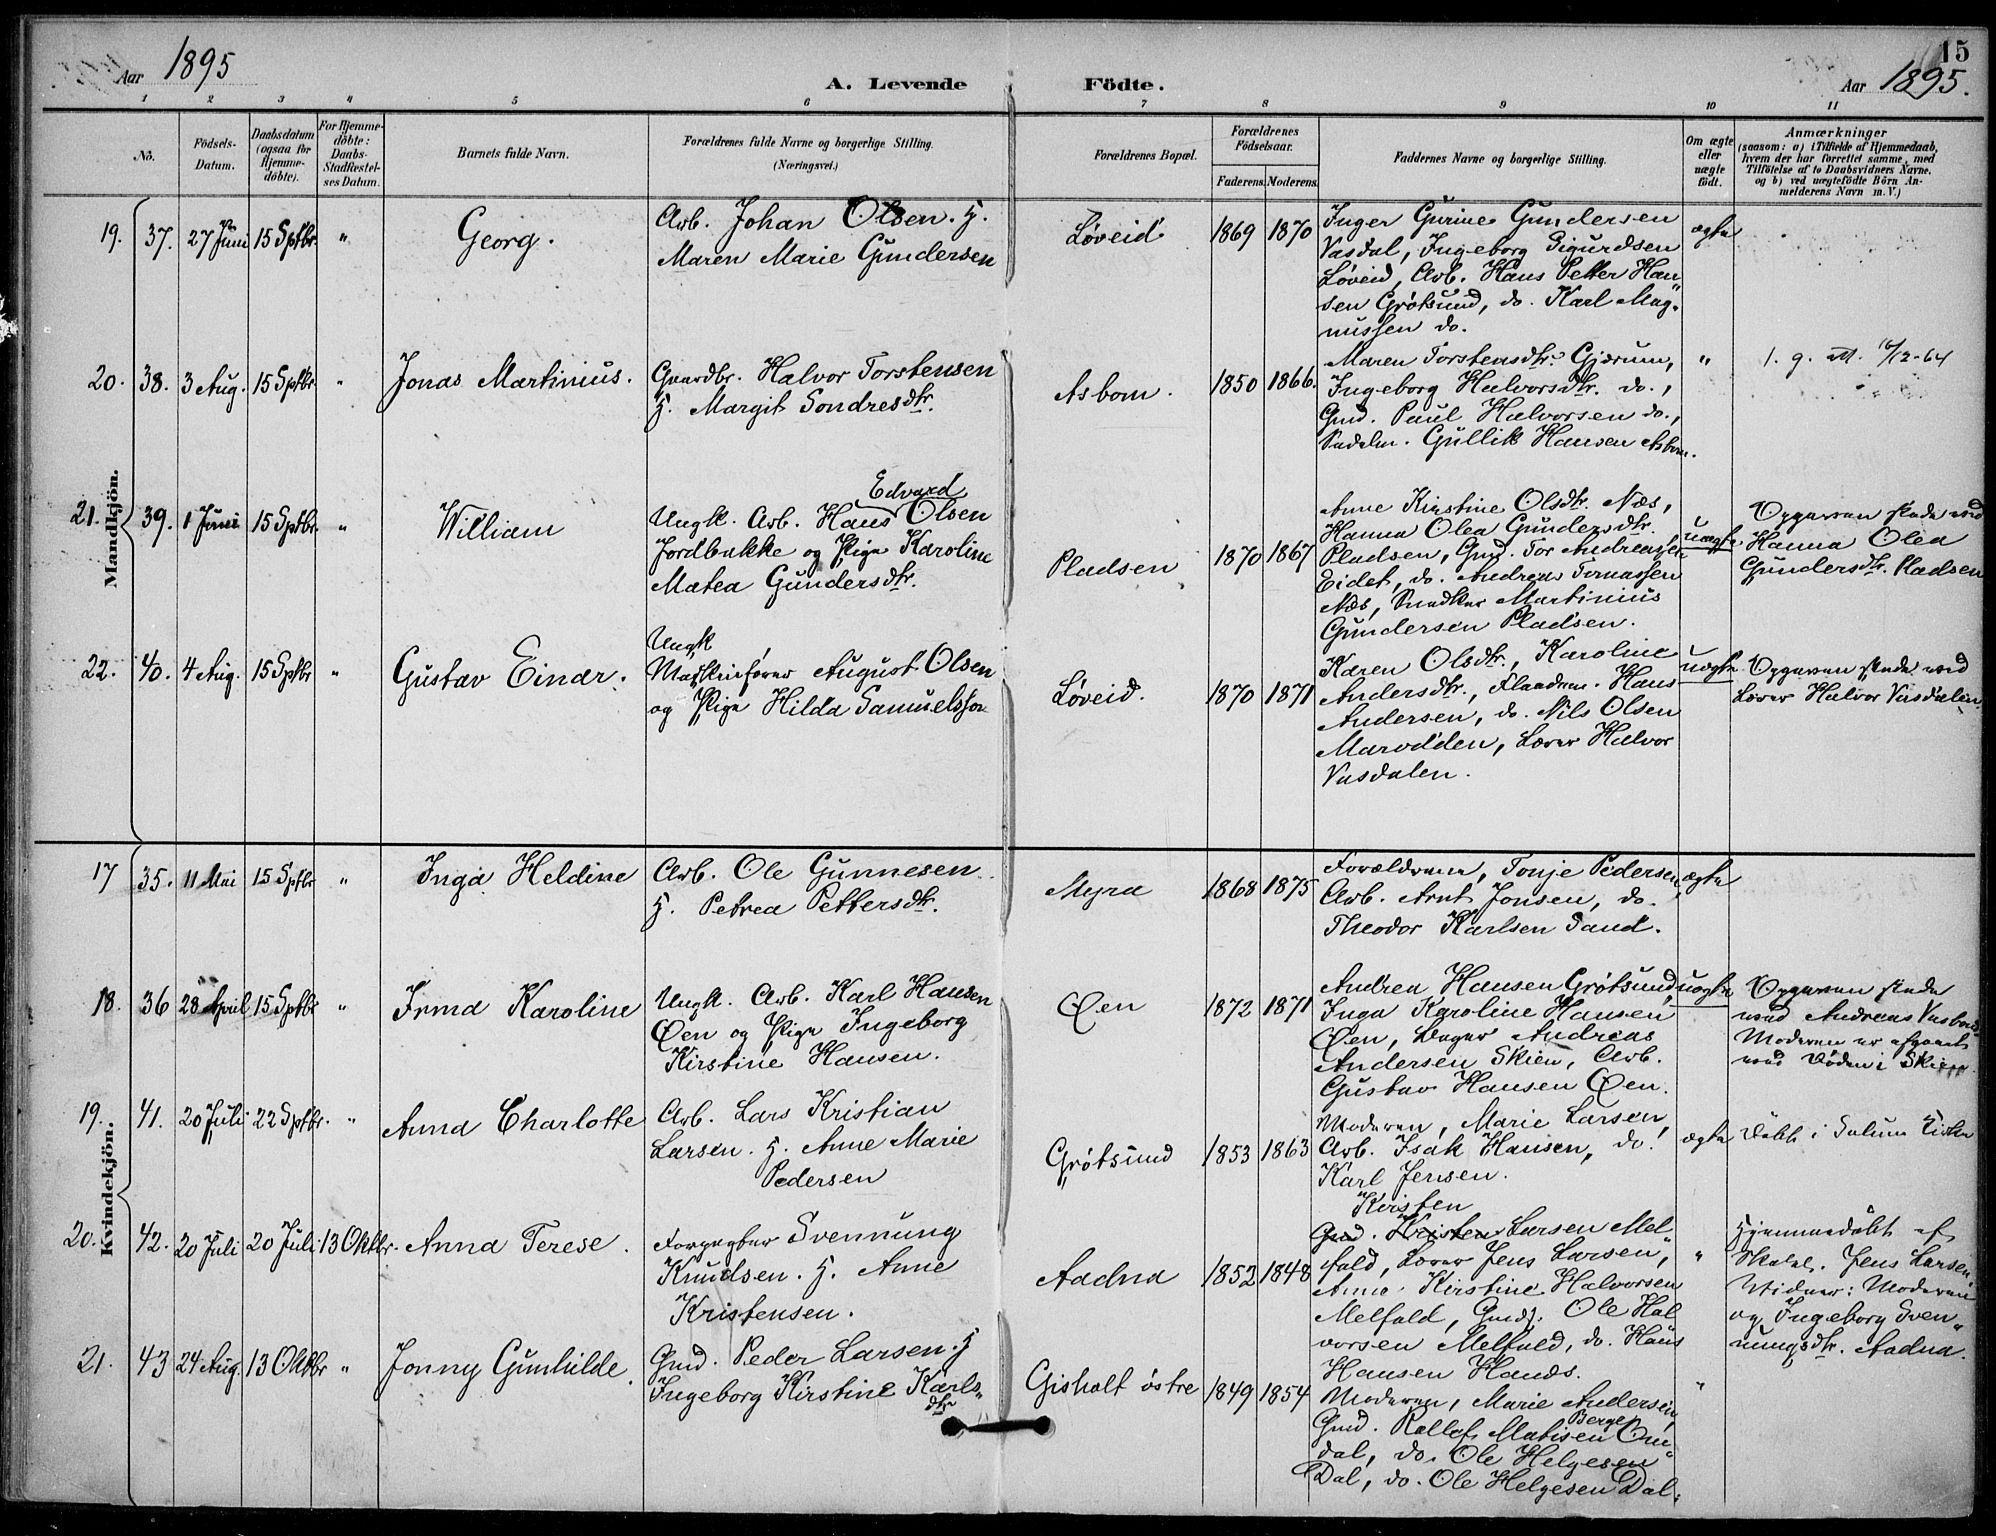 Aar 1895
A. Levende Födte.
15
Aar 1895.
1 2 3 4 5 6 7 8 9 10 11
No.
Födsels-Datum.
Daabsdatum (ogsaa for Hjemme-döbte).
For Hjemme-döbte: Daabs-Stadfæstel-ses Datum.
Barnets fulde Navn.
Forældrenes fulde Navne og borgerlige Stilling.
(Næringsvei.)
Forældrenes Bopæl.
Forældrenes Födselsaar.
Faderens. Moderens.
Faddernes Navne og borgerlige Stilling.
Om ægte eller uægte födt.
Anmærkninger
(saasom: a) i Tilfælde af Hjemmedaab,
hvem der har forrettet samme, med
Tilföielse af to Daabsvidners Navne,
og b) ved uægtefödte Börn An-
melderens Navn m. V.)
Mandkjön.
19. 37. 27 Juni 15 Sptbr. "
Georg.
Arb. Johan Olsen. H.
Maren Marie Gundersen
Løveid 1869 1870
Inger Gurine Gundersen
Vasdal, Ingeborg Sigurdsen
Løveid, Arb. Hans Petter Han"
sen Grøtsund, do. Karl Mag"
nussen do.
ægte
20. 38. 3 Aug. 15 Sptbr. "
Jonas Martinius.
Gaardbr. Halvor Torstensen
H. Margit Sondresdtr.
Asbom. 1850 1866.
Maren Torstensdtr. Gjærum,
Ingeborg Halvorsdtr. do.,
Gmd. Paul Halvorsen do.,
Gullik Hansen Asbom.
"
21. 39. 1 Juni 15 Sptbr. "
William
Edvard
Ungk. Arb. Hans Olsen
Jordbakke og Pige Karoline
Matea Gundersdtr.
Pladsen 1870 1867
Anne Kirstine Olsdtr. Næs,
Hanna Olea Gundersdtr.
Pladsen, Gmd. Tor Andreassen
Eidet, do. Andreas Tomassen
Næs, Snedker Martinius
Gundersen Pladsen.
uægte
Opgaven skede ved
Hanna Olea
Gundersdtr. Pladsen
22. 40. 4 Aug. 15 Sptbr "
Gustav Einar.
Ungk
Maskinfører August Olsen
og Pige Hilda Samuelsson
Løveid. 1870 1871
Karen Olsdtr., Karoline
Andersdtr., Hans
Andersen, do. Nils Olsen
Marodden, Lærer Halvor
Vasdalen.
uægte
Opgaven skede ved
Lærer Halvor Vasdalen
Kvindekjön.
17 35. 11 Mai 15 Sptbr "
Inga Heldine
Arb. Ole Gunnesen
H. Petrea Pettersdtr.
Myra 1868 1875
Forældrene, Tonje Pedersen,
Arb. Arnt Jonsen, do.
Theodor Karlsen Sand.
ægte
18. 36 28 April 15 Sptbr "
Irma Karoline
Ungk. Arb. Karl Hansen
Øen og Pige Ingeborg
Kirstine Hansen.
Øen 1872 1871
Andrea Hansen Grøtsund,
Inga Karoline Hansen
Øen, Andreas
Andersen Skien, Arb.
Gustav Hansen Øen.
uægte
Opgaven skede
ved Andreas
Moderen er afgaaet
ved Døden i Skien
19. 41. 20 Juli 22 Sptbr. "
Anna Charlotte
Arb. Lars Kristian
Larsen. H. Anne Marie
Pedersen
Grøtsund 1853 1863
Moderen, Marie Larsen,
Arb. Isak Hansen, do.
Karl Jensen.
ægte
Døbt i Solum Kirke
20. 42. 20 Juli 20 Juli 13 Oktbr.
Anna Terese.
Forpagter Svennung
Knudsen. H. Anne
Kristensen.
Aadna 1852 1848
Kirsten
Gmd. Kristen Larsen Mel"
fald, Lærer Jens Larsen,
Anne Kirstine Halvorsen
Melfald, Gmd. Ole Hal
vorsen Melfald, do. Hans
Hansen Hands.
"
Hjemmedøbt af
Jens Larsen
Vidner: Moderen
og Ingeborg Sven"
nungsdtr. Aadna.
21. 43 24 Aug. 13 Oktbr "
Jonny Gunhilde.
Gmd. Peder Larsen. H
Ingeborg Kirstine Karls"
dtr
Gisholt østre 1849 1854
Moderen, Marie Andersen,
Berge,
Gmd. Rollef Matisen Om"
dal, do. Ole Helgesen
Dal, do. Ole Helgesen Dal.
"